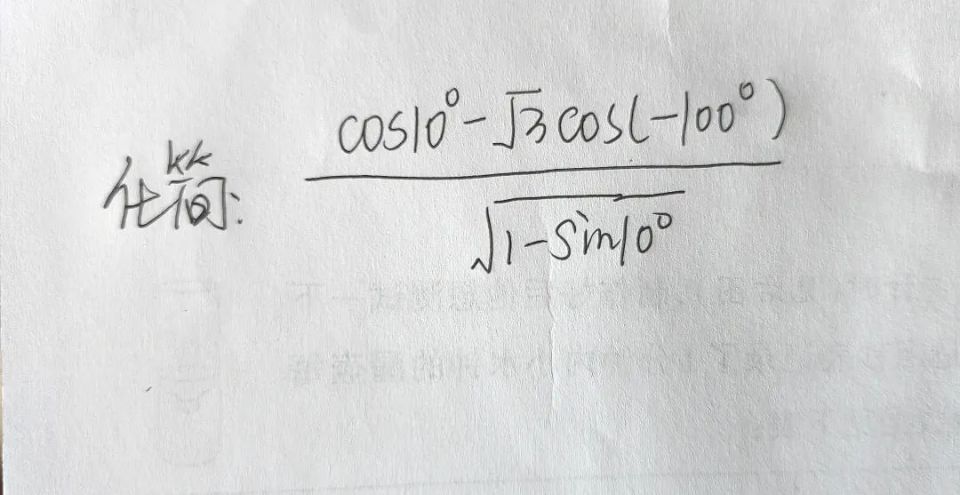 化简: \frac{cos10° - \sqrt{3} cos(-100°)}{\sqrt{1 - sin10°}}